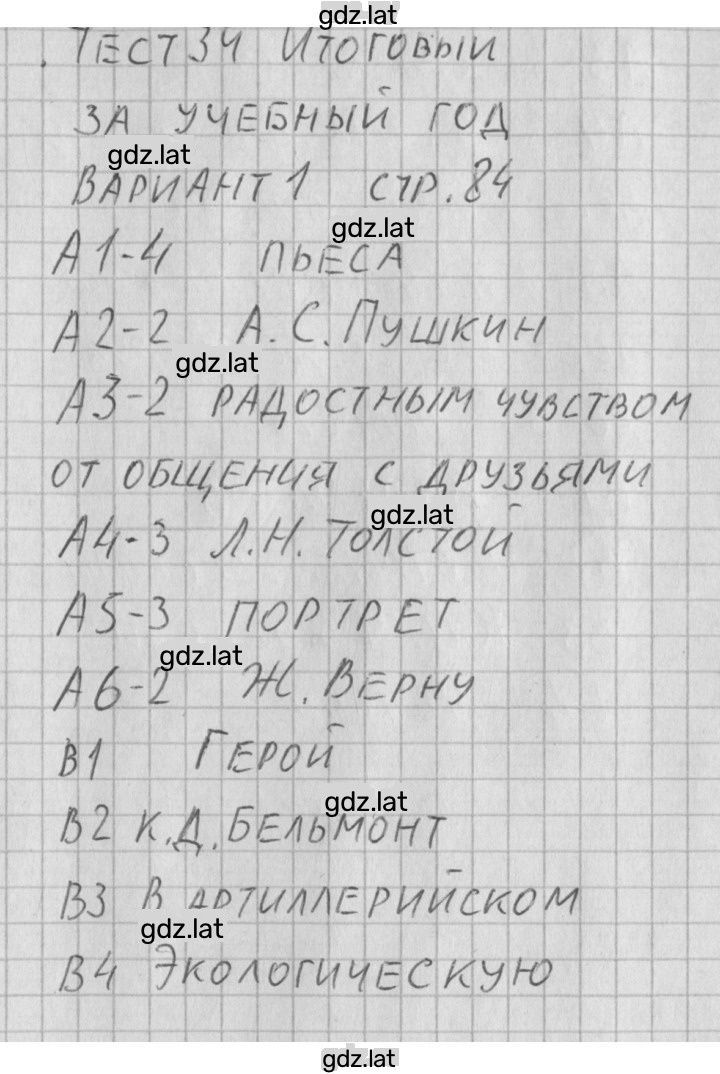 gdz.lat
Тест 34 Итоговый
за учебный год
gdz.lat
Вариант 1 стр. 84
gdz.lat
А1-4 пьеса
А2-2 А.С. Пушкин
gdz.lat
А3-2 радостным чувством
от общения с друзьями
gdz.lat
А4-3 Л.Н. Толстой
А5-3 портрет
gdz.lat
А6-2 Ж. Верну
В1 Герой
gdz.lat
В2 К.Д. Бельмонт
В3 В артиллерийском
gdz.lat
В4 Экологическую
gdz.lat